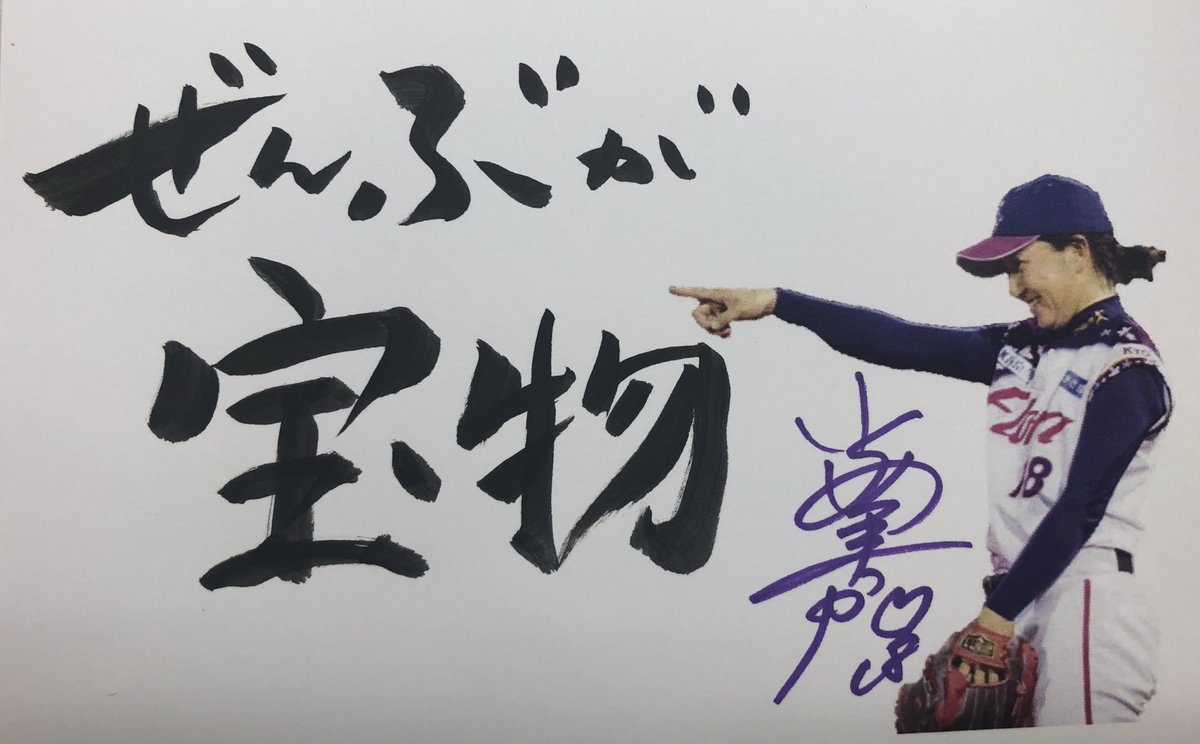 ぜんぶが
宝物
18